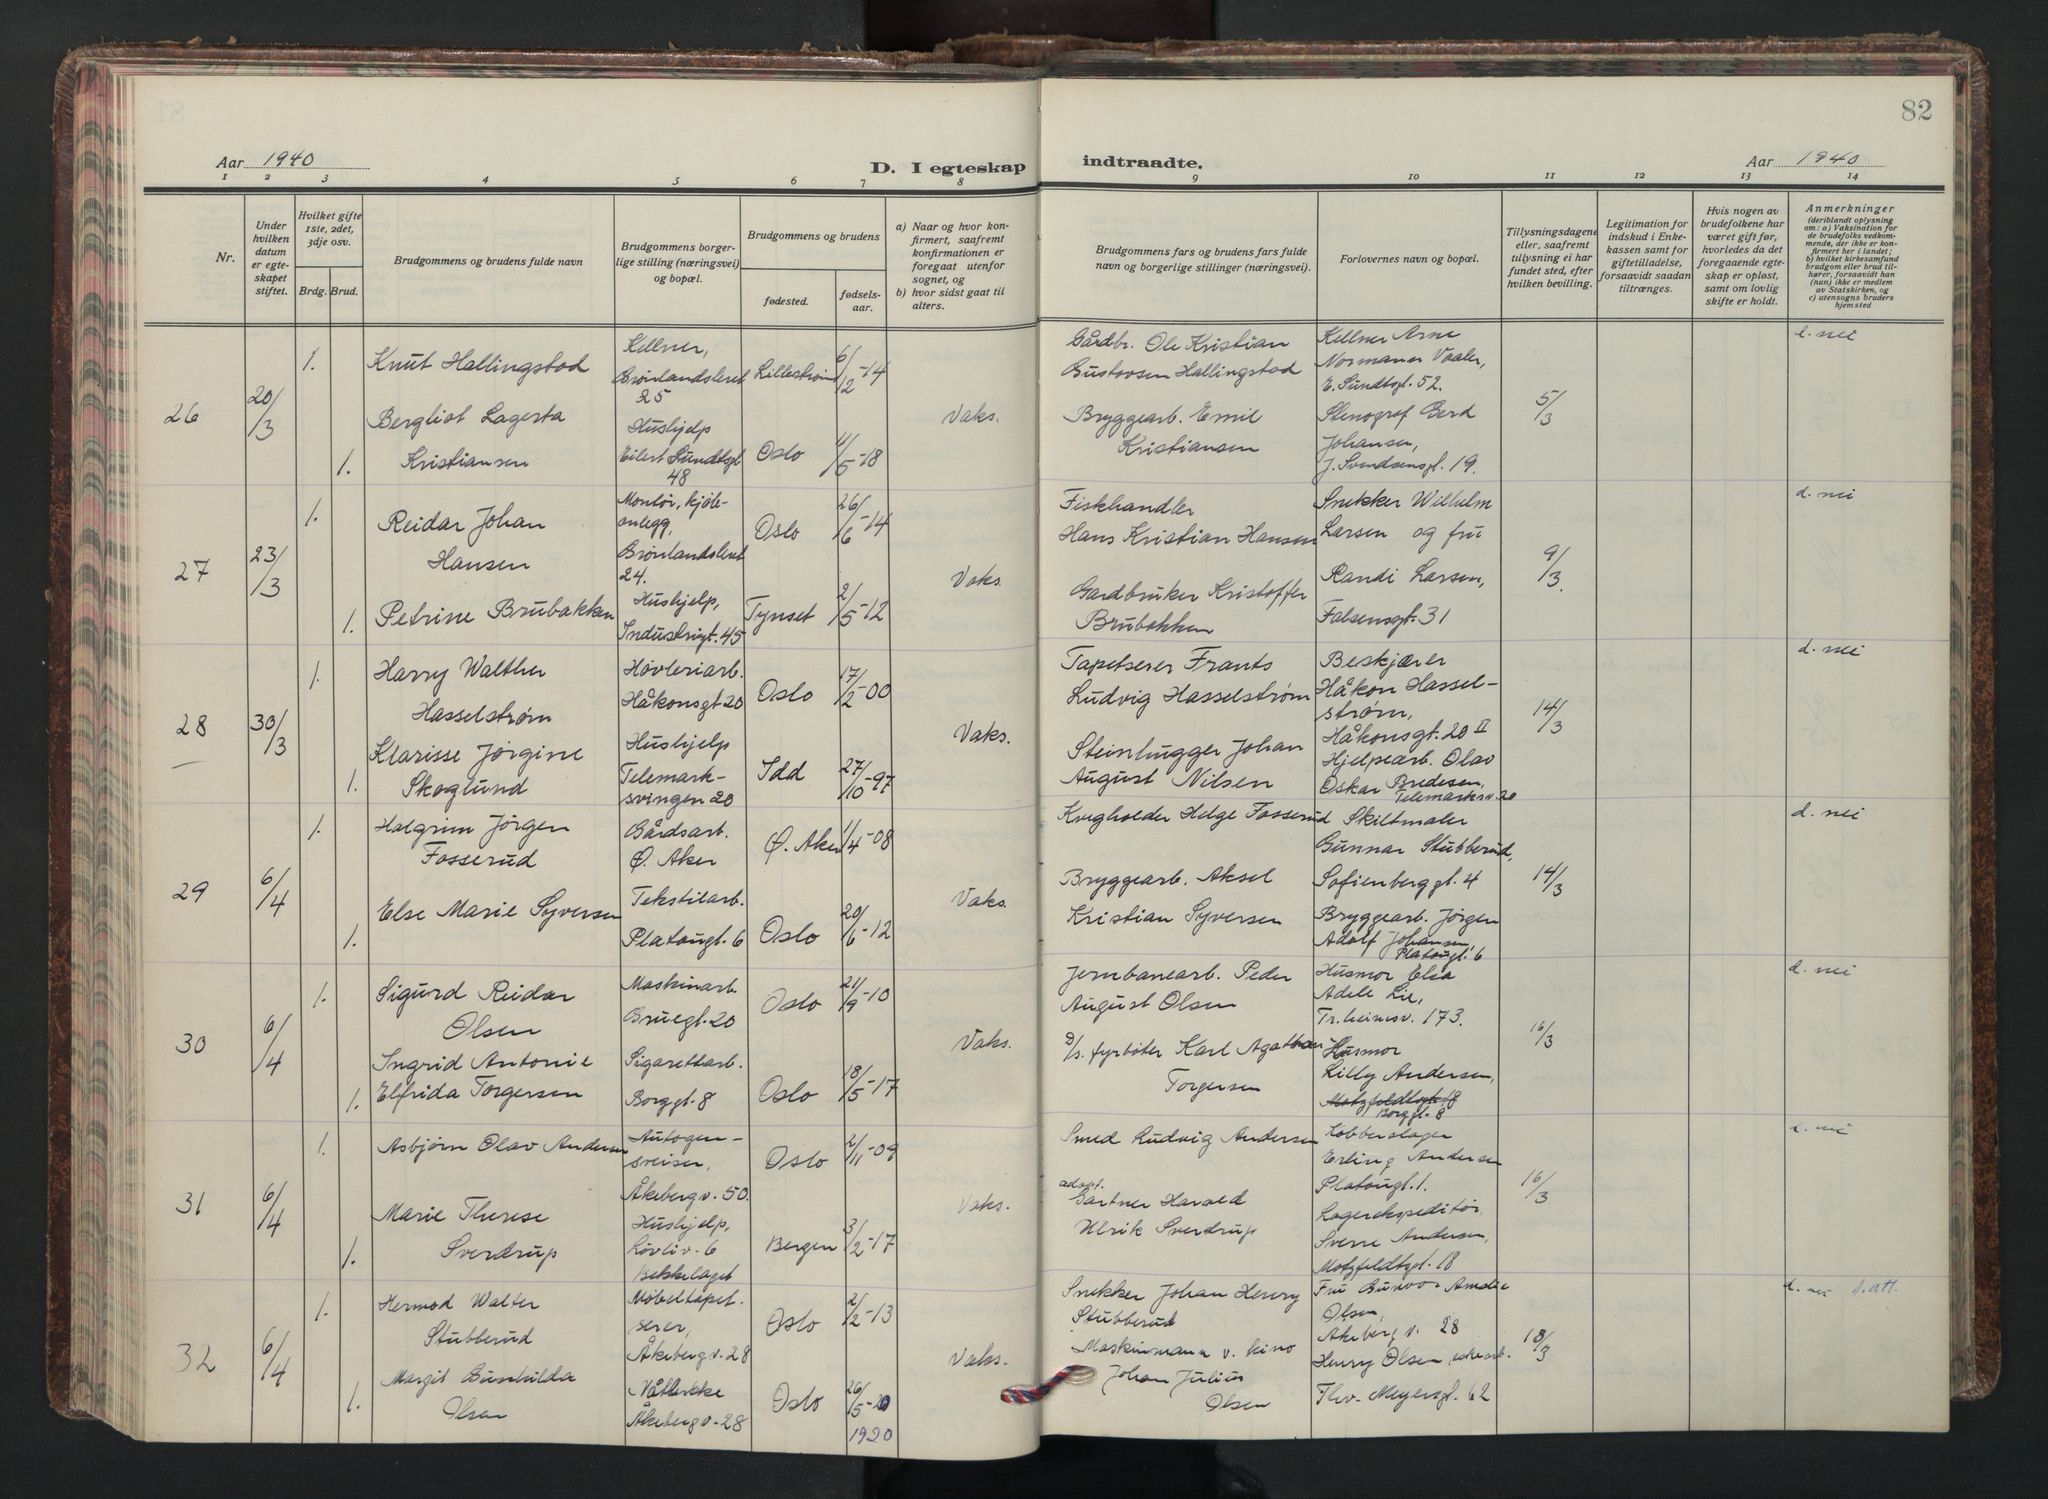 82
Aar 1940
D. I egteskap indtraadte.
Aar 1940
1 2 3 4 5 6 7 8 9 10 11 12 13 14
Nr.
Under hvilken datum er egteskapet stiftet.
Hvilket gifte 1ste, 2det, 3dje osv.
Brdg. Brud.
Brudgommens og brudens fulde navn
Brudgommens borgerlige stilling (næringsvei) og bopæl.
Brudgommens og brudens
fødested.
fødselsaar.
a) Naar og hvor konfirmert, saafremt konfirmationen er foregaat utenfor sognet, og
b) hvor sidst gaat til alters.
Brudgommens fars og brudens fars fulde navn og borgerlige stillinger (næringsvei).
Forlovernes navn og bopæl.
Tillysningsdagene eller, saafremt tillysning ei har fundet sted, efter hvilken bevilling.
Legitimation for indskud i Enkekassen samt for giftetilladelse, forsaavidt saadan tiltrænges.
Hvis nogen av brudefolkene har været gift før, hvorledes da det foregaaende egteskap er opløst, samt om lovlig skifte er holdt.
Anmerkninger
(deriblandt oplysning om: a) Vaksination for de brudefolks vedkommende, der ikke er konfirmert her i landet; b) hvilket kirkesamfund brudgom eller brud tilhører, forsaavidt han (hun) ikke er medlem av Statskirken, og c) utensogns bruders hjemsted
26
20/3
1.
Knut Hallingstad
Kellner,
Grønlandsleret
25
Lillestrøm
6/12-14
1.
Bergliot Lagerta
Kristiansen
Hushjelp
Eilert Sundtsgt
48
Oslo
4/5-18
Vaks.
Gårdbr. Ole Kristian
Gustavsen Hallingstad
Bryggearb. Emil
Kristiansen
Kellner Arne
Normann Vaaler,
E. Sundtsgt. 52.
Stenograf Gerd
Johansen,
J. Svendsensgt. 19.
5/3
d. nei
27
23/3
1.
Reidar Johan
Hansen
Montør, kjøle-
anlegg,
Grønlandsleret
24.
Oslo
26/6-14
1.
Petrine Brubakken
Hushjelp,
Industrigt. 45
Tynset
2/5-12
Vaks.
Fiskhandler
Hans Kristian Hansen
Gardbruker Kristoffer
Brubakken
Snekker Wilhelm
Larsen og fru
Randi Larsen,
Falsensgt. 31
9/3.
d. nei
28
30/3
1.
Harry Walther
Hasselstrøm
Høvleriarb.
Håkonsgt 20
Oslo
17/2-00
1.
Klarisse Jørgine
Skoglund
Hushjelp
Telemark-
svingen 20
Idd
27/10-97
Vaks.
Tapetserer Frants
Ludvig Hasselstrøm
Steinhugger Johan
August Nilsen
Beskjærer
Håkon Hassel-
strøm,
Håkonsgt. 20 II
Hjelpearb. Olav
Oskar Bredesen,
Telemarksv. 20
14/3
d. nei
29
6/4
1.
Halgrim Jørgen
Fosserud
Gårdsarb.
Ø. Aker
Ø. Aker
11/4-08
1.
Else Marie Syversen
Tekstilarb.
Platougt. 6
Oslo
20/6-12
Vaks.
Kvegholder Helge Fosserud
Bryggearb. Aksel
Kristian Syversen
Skiltmaler
Gunnar Stubberud,
Sofienberggt. 4
Bryggearb. Jørgen
Adolf Johansen,
Platougt. 6
14/3
d. nei
30
6/4
1.
Sigurd Reidar
Olsen
Maskinarb.
Bruegt. 20
Oslo
21/9-10
1.
Ingrid Antonie
Elfrida Torgersen
Sigarettarb.
Borggt. 8
Oslo
18/5-17
Vaks.
Jernbanearb. Peder
August Olsen
d/s. fyrbøter Karl Agathon
Torgersen
Husmor Elsa
Adele Lie,
Tr.heimsv. 173.
Husmor
Lilly Andersen,
Motzfeldtsgt. 18
Borggt. 8
16/3
d. nei
31
6/4
1.
Asbjørn Olav Andersen
Autogen-
sveiser,
Åkebergv. 50.
Oslo
2/11-09
1.
Marie Therese
Sverdrup
Hushjelp,
Løvliv. 6
Bekkelaget
Bergen
3/2-17
Vaks.
Smed Ludvig Andersen
adopt.
Gartner Harald
Ulrik Sverdrup
Kobberslager
Erling Andersen
Platougt. 1.
Lagerekspeditør,
Sverre Andersen,
Motzfeldtsgt. 18
16/3
d. nei
32
6/4
1.
Hermod Walter
Stubberud
Møbeltapet-
serer,
Åkebergv. 28
Oslo
2/2-13
1.
Margit Gunhilda
Olsen
Åkebergv. 28
Oslo
26/5-20
1920
Vaks.
Snekker Johan Henry
Stubberud
Maskinmann v. kino
Johan Julius
Olsen
Fru Amalie
Olsen,
Akeberg v. 28
Henry Olsen,
Thv. Meyersgt. 62
18/3
d. nei d. att.